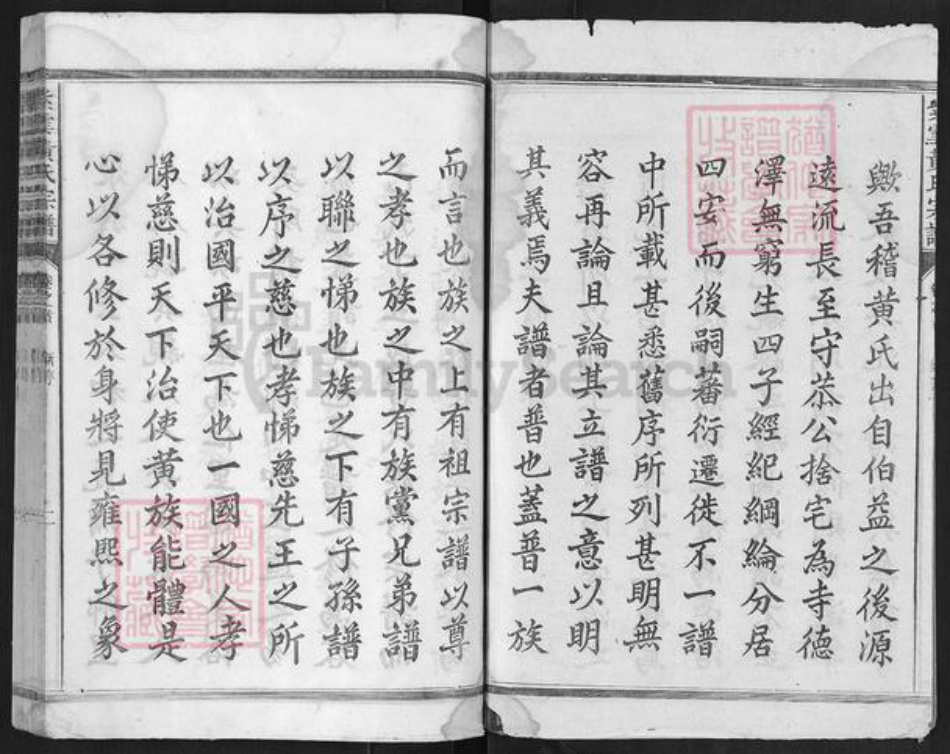 歟吾稽黄氏出自伯益之後源
遠流長至守恭公捨宅為寺德
澤無窮生四子經紀綱綸分居
四安而後嗣蕃衍遷徙不一譜
中所載甚悉舊序所列甚明無
容再論且論其立譜之意以明
其義焉夫譜者普也蓋普一族
而言也族之上有祖宗譜以尊
之孝也族之中有族黨兄弟譜
以聯之悌也族之下有子孫譜
以序之慈也孝悌慈先王之所
以治國平天下也一國之人孝
悌慈則天下治使黄族能體是
心以各修於身將見雍熙之象
紫雲黄氏宗譜
FamilySearch